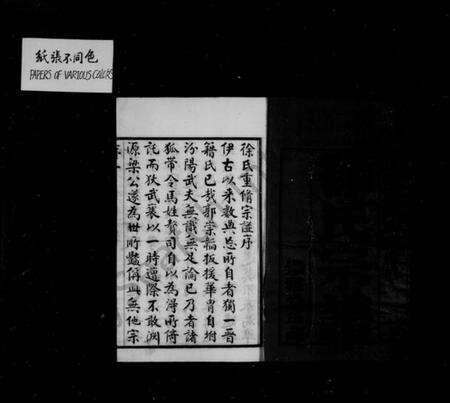 紙張不同色
PAPERS OF VARIOUS COLORS
徐氏重脩宗譜序
伊古以來數典忘所自者獨一晉
籍氏已哉郭崇韜扳援華胄自坿
汾陽武夫無識無足論已乃者諸
狐帶令馬姓贅司自以為得所倚
託而狄武襄以一時遭際不敢溷
源梁公遂為世所豔稱典無他宗